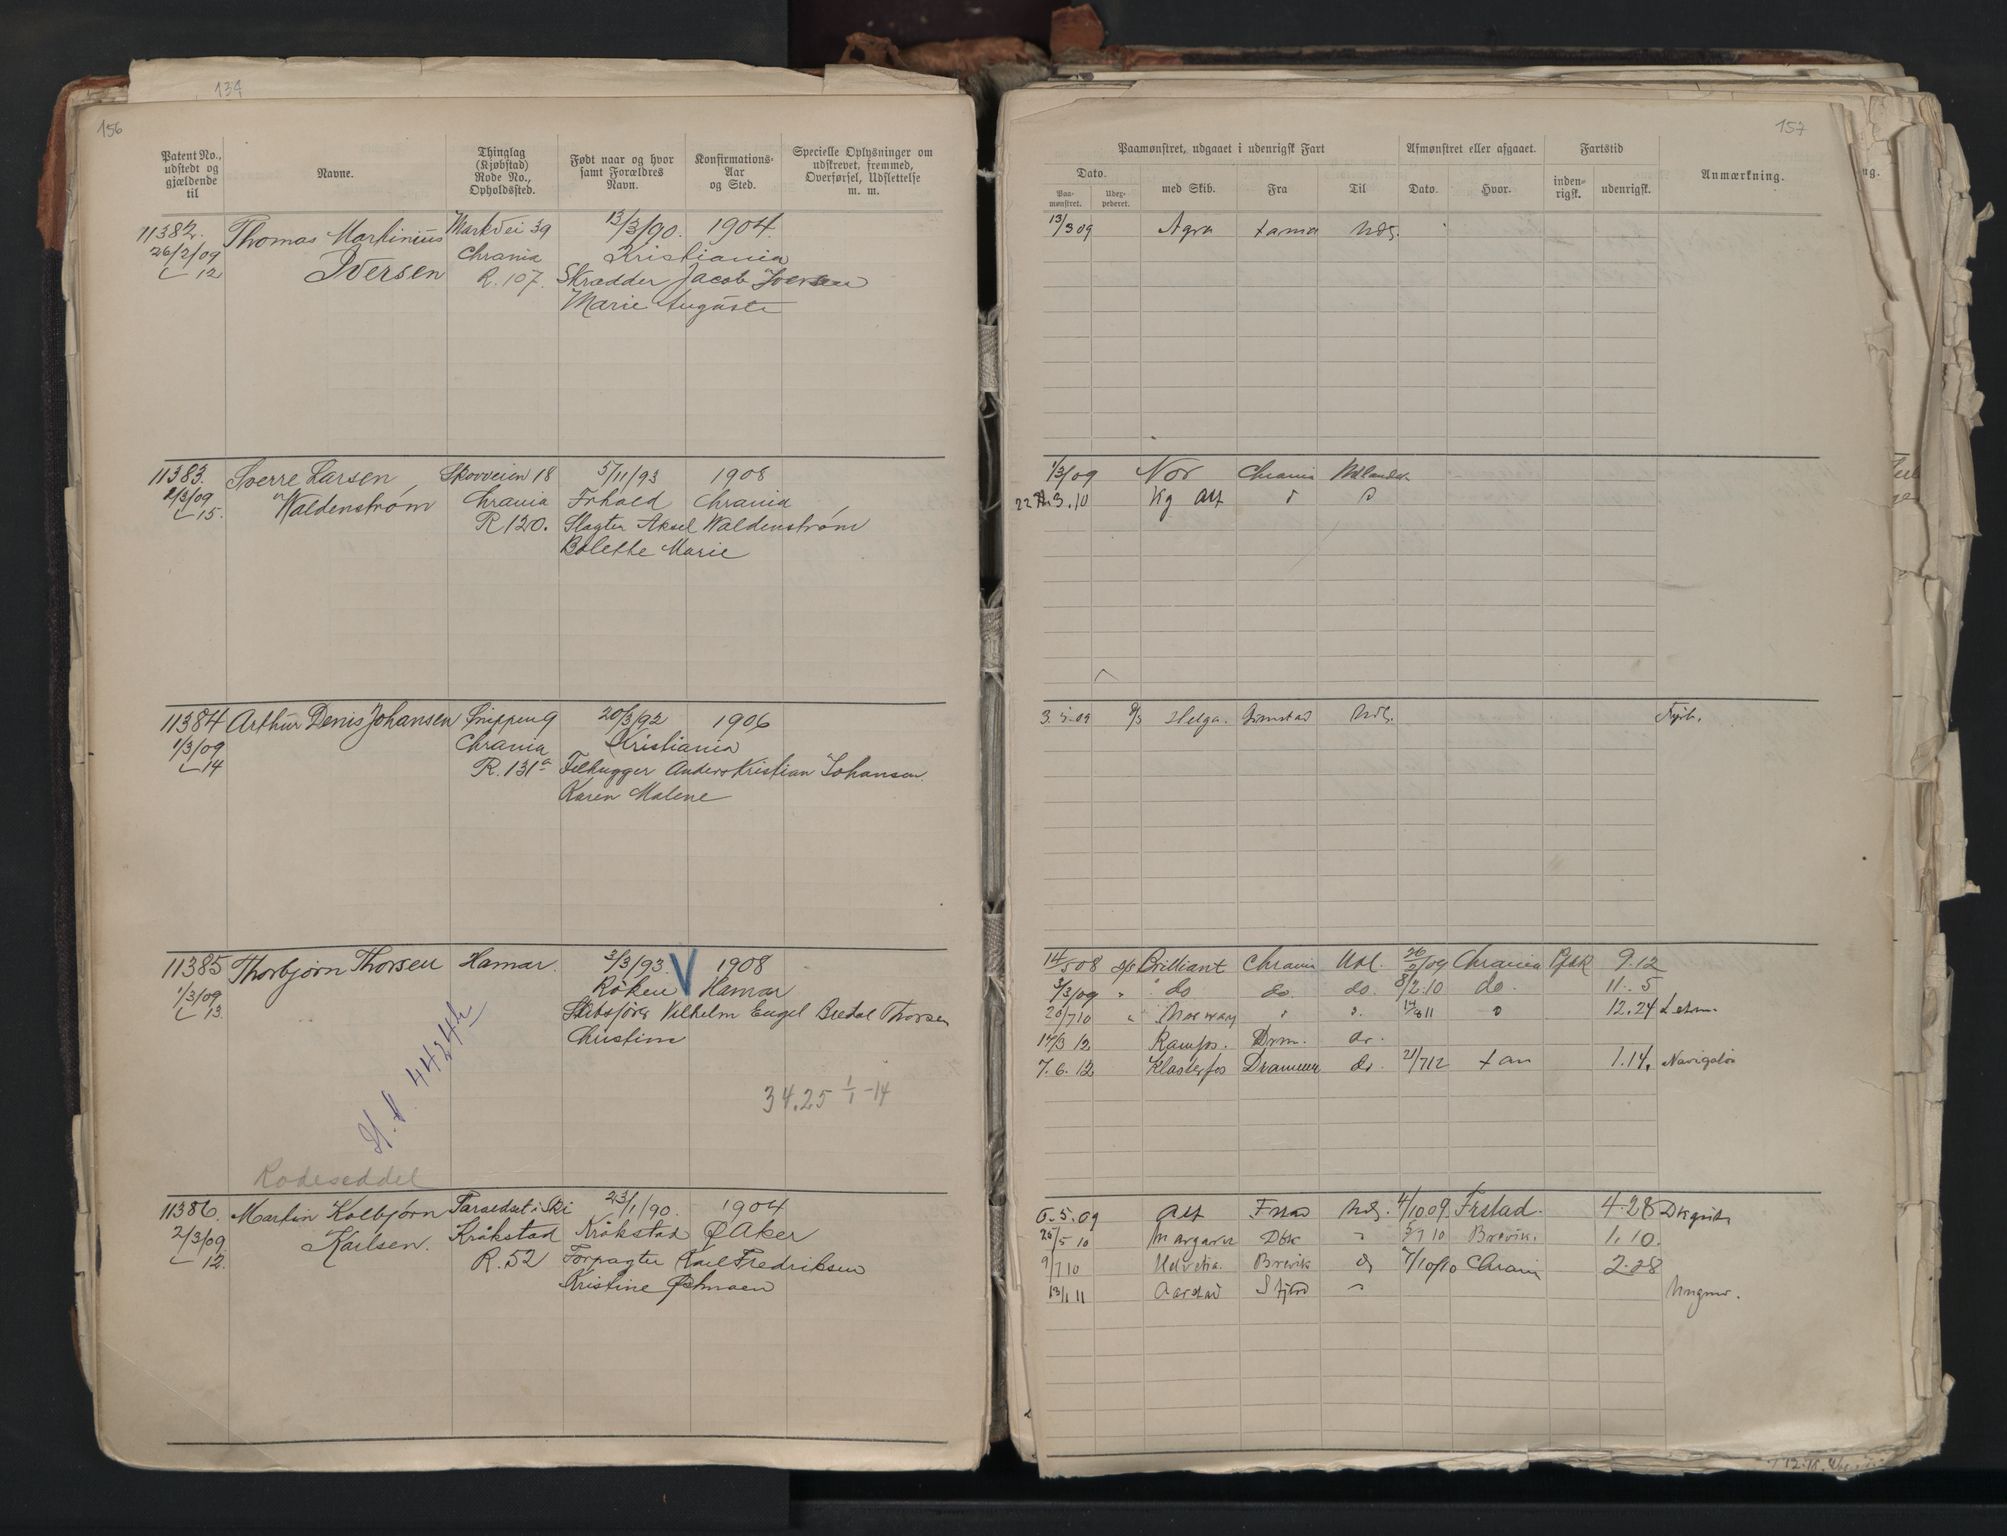 134
156
Patent No., udstedt og gjældende til
Navne.
Thinglag (Kjøbstad) Rode No., Opholdssted.
Født naar og hvor samt Forældres Navn.
Konfirmations- Aar og Sted.
Specielle Oplysninger om udskrevet, fremmed, Overførsel, Udslettelse m. m.
11382. Thomas Martinius Markvei 39 13/3/90. 1904.
26/2/09 Iversen Chrania Kristiania
12 R. 107. Skrædder Jacob Iversen
Marie Auguste
11383. Sverre Larsen Skovveien 18 5/11/93 1908
2/3/09 Waldenstrøm Chrania Frhald Chrania
15. R 120. Slagter Aksel Waldenstrøm
Bolette Marie
11384 Arthur Denis Johansen Snippen 9 20/3/92 1906
1/3/09 Chrania Kristiania
14 R. 131a Filhugger Anders Kristian Johansen
Karen Malene
11385 Thorbjørn Thorsen Hamar. 3/3/93. V 1908
1/3/09. Røken Hamar
13. Skibsfører Vilhelm Engel Bredal Thorsen
Christine
4424
34.25 1/1-14
Rodeseddel
11386. Martin Kolbjørn i Ski 23/1/90. 1904
2/3/09. Karlsen. Kråkstad Kråkstad Ø Aker
12. R. 52 Forpagter Karl Fredriksen
Kristine
157
Paamønstret, udgaaet i udenrigsk Fart
Afmønstret eller afgaaet.
Fartstid
Anmærkning.
Dato.
Paa- mønstret.
Udex- pederet.
med Skib.
Fra
Til
Dato.
Hvor.
inden- rigsk.
udenrigsk.
13/3 09 Agra Udl.
1/3/09 Nor Chrania Udlandet
3.10 Kg Alf
3.3.09 Helga. Grimstad Udl. Fyrb.
14/5 08 Brilliant Chrania Udl. 26/2/09 Chrania 9.12
3/3/09 " do do. do. 8/2.10 do. 11. 5
20/7 10 " Norway 12.24
17/3 12 Ramfos. Drm. do.
7.6.12 Klosterfos Drammen do. 21/7 12 1.14.
6.5.09 Alf Frstad Udl. 4/10 09. Frstad. 4.28
25/5 10 Dbk 5/7 10 Brevik. 1.10.
9/7 10 Helvetia. Brevik 7/10/10 Chrania 2.28
13/1 11 Aarstad Sfjord Ungmr.